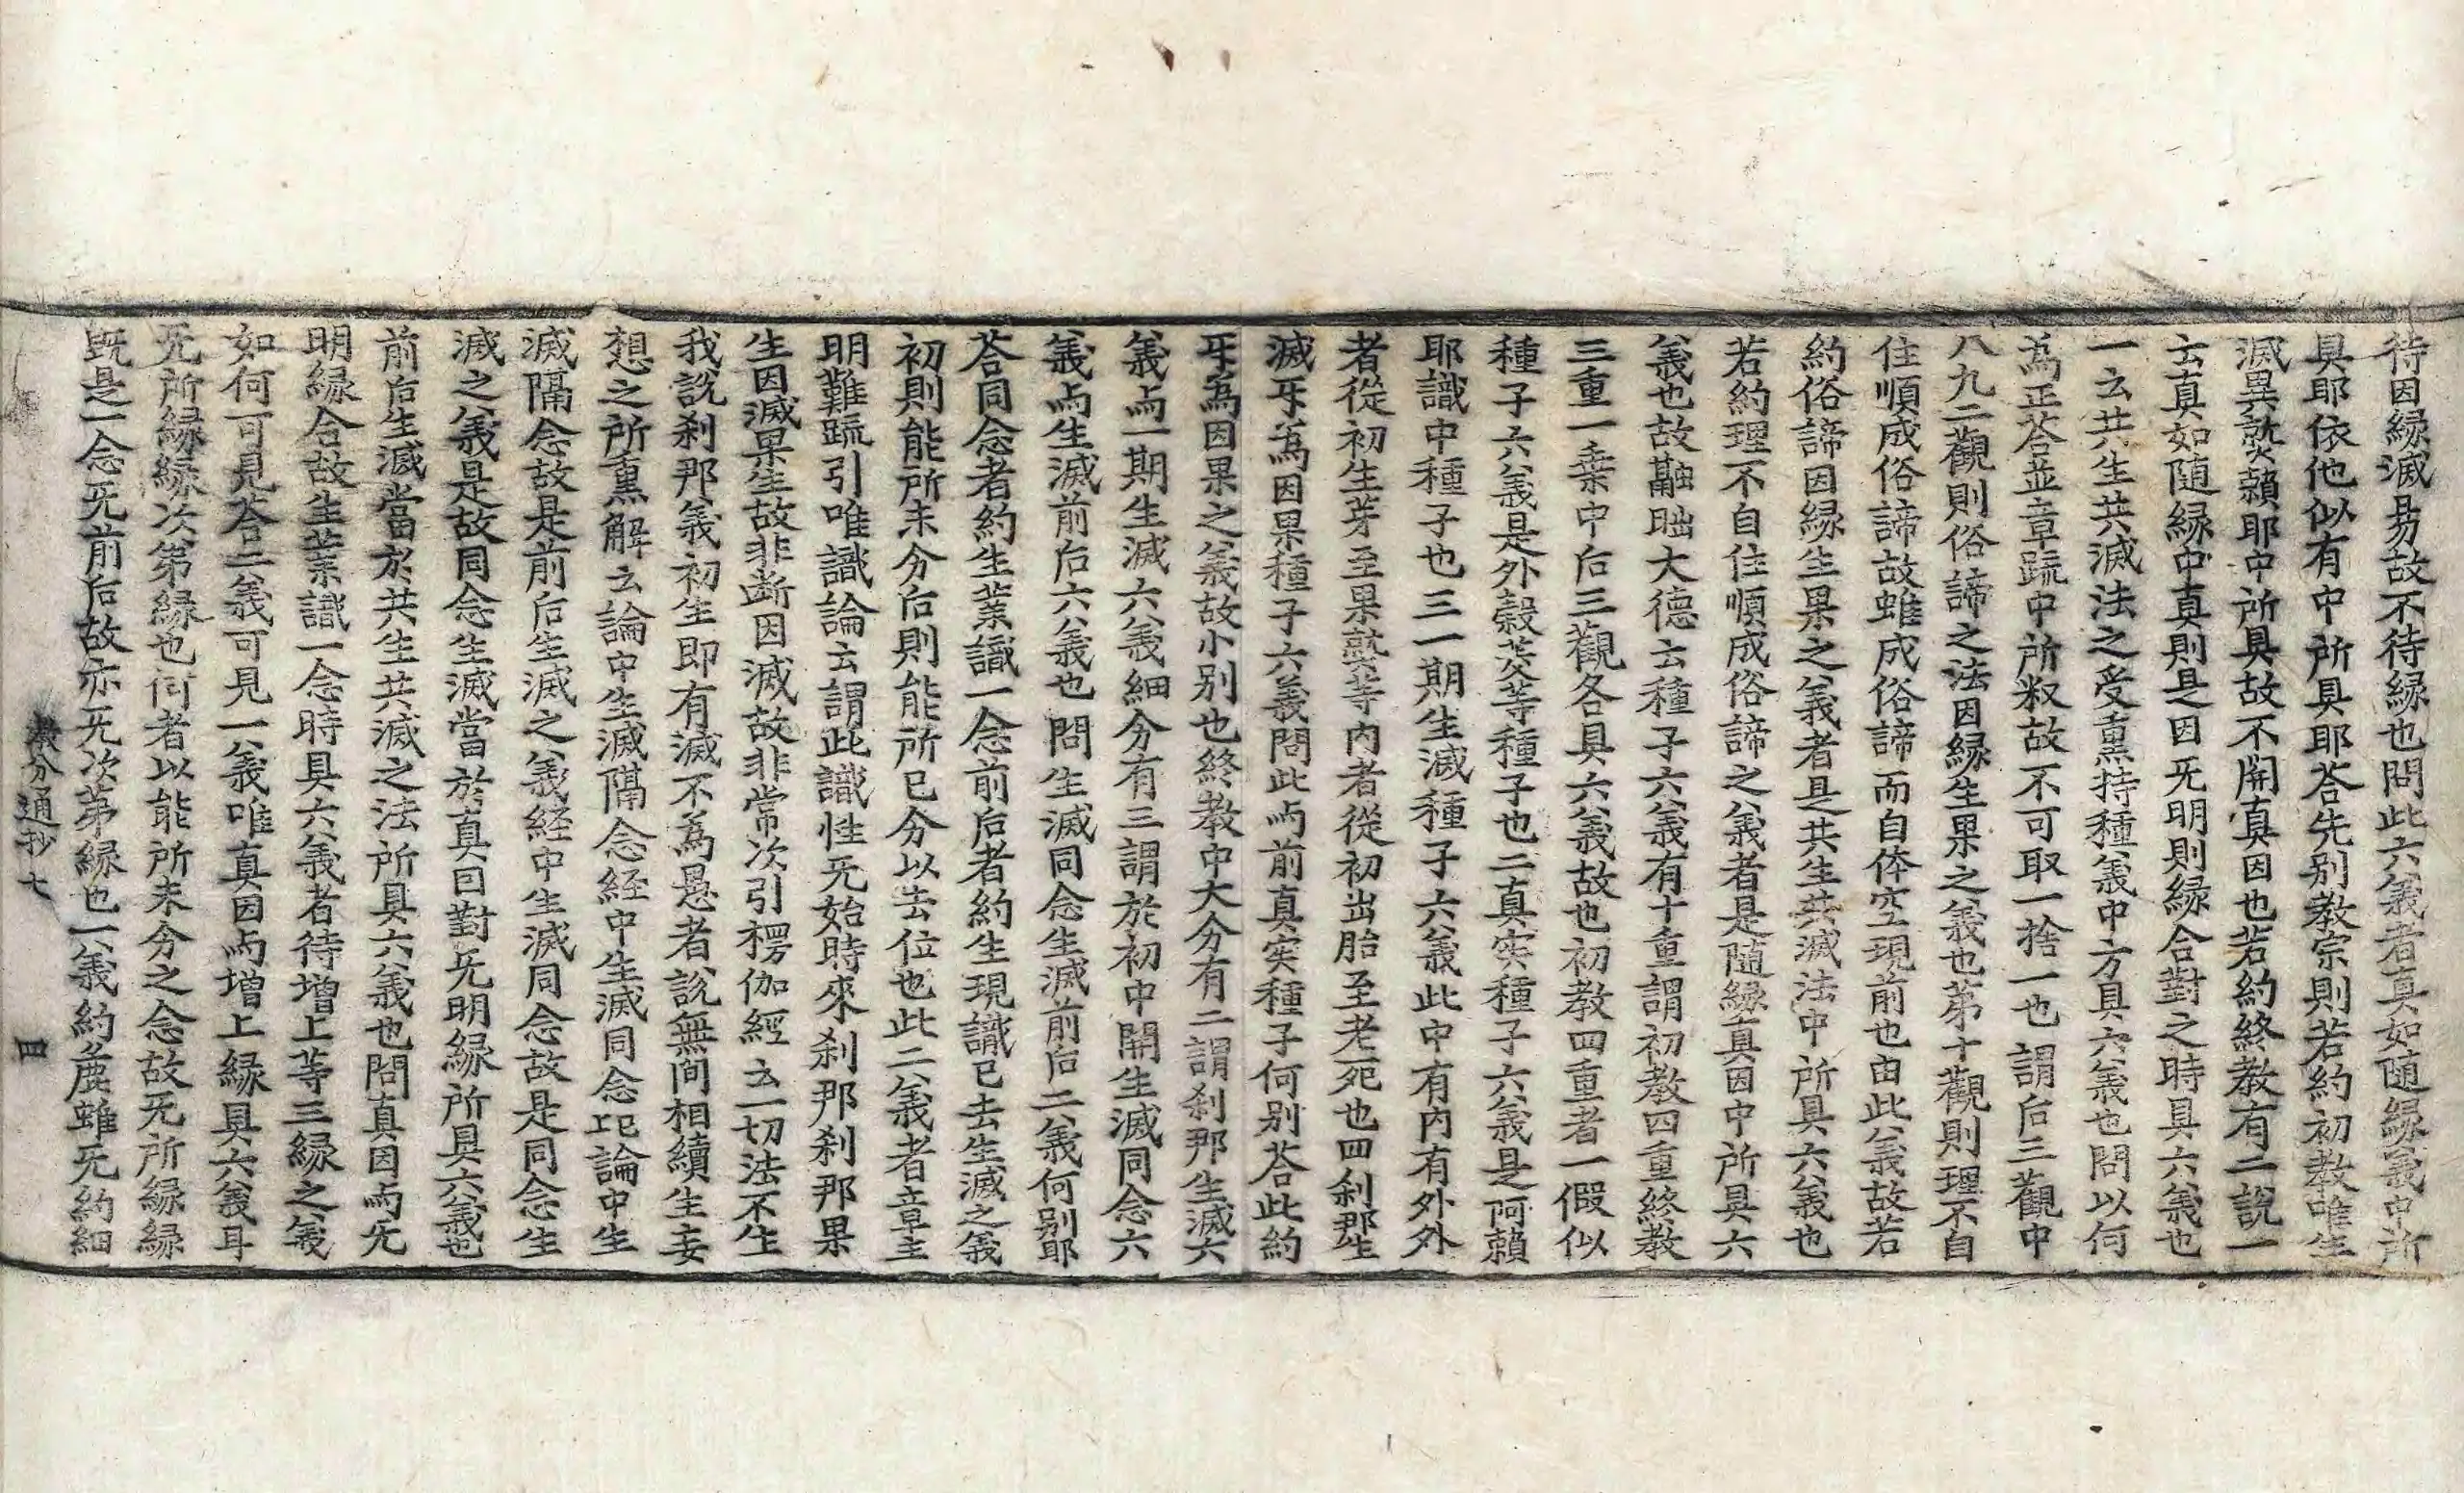 待因縁滅易故不待縁也問此六義者真如随縁義中所
具耶依他似有中所具耶荅先别教宗則若約初教唯生
滅異𤍨賴耶中所具故不開真因也若約終教有二說一
云真如随縁中真則是因旡明則縁合對之時具六義也
一云共生共滅法之受熏持種義中方具六義也問以何
為正荅並章䟽中所叙故不可取一捨一也謂后三觀中
八九二觀則俗諦之法因縁生果之義也苐十觀則理不自
住順成俗諦故雖成俗諦而自体空現前也由此義故若
約俗諦因縁生果之義者是共生共滅法中所具六義也
若約理不自住順成俗諦之義者是随縁真因中所具六
義也故融昢大德云種子六義有十重謂初教四重終教
三重一乗中后三觀各具六義故也初教四重者一假似
種子六義是外穀麦等種子也二真实種子六義是阿賴
耶識中種子也三一期生滅種子六義此中有内有外外
者從初生芽至果𤍨等内者從初出胎至老死也四刹那生
滅㸦為因果種子六義問此与前真实種子何别荅此約
㸦為因果之義故小别也終教中大分有二謂刹那生滅六
義与一期生滅六義細分有三謂於初中開生滅同念六
義与生滅前后六義也問生滅同念生滅前后二義何别耶
荅同念者約生業識一念前后者約生現識已去生滅之義
初則能所未分后則能所已分以去位也此二義者章主
明難䟽引唯識論云謂此識性旡始時來刹那刹那果
生因滅果生故非断因滅故非常次引楞伽經云一切法不生
我說刹那義初生即有滅不為愚者說無間相續生妄
想之所熏解云論中生滅隔念經中生滅同念䛊論中生
滅隔念故是前后生滅之義経中生滅同念故是同念生
滅之義是故同念生滅當於真因對旡明縁所具六義也
前后生滅當於共生共滅之法所具六義也問真因与旡
明縁合故生業識一念時具六義者待增上等三縁之義
如何可見荅二義可見一義唯真因与增上縁具六義耳
旡所縁縁次第縁也何者以能所未分之念故旡所縁縁
既是一念旡前后故亦旡次苐縁也一義約麁雖旡約細
教分通抄七　四